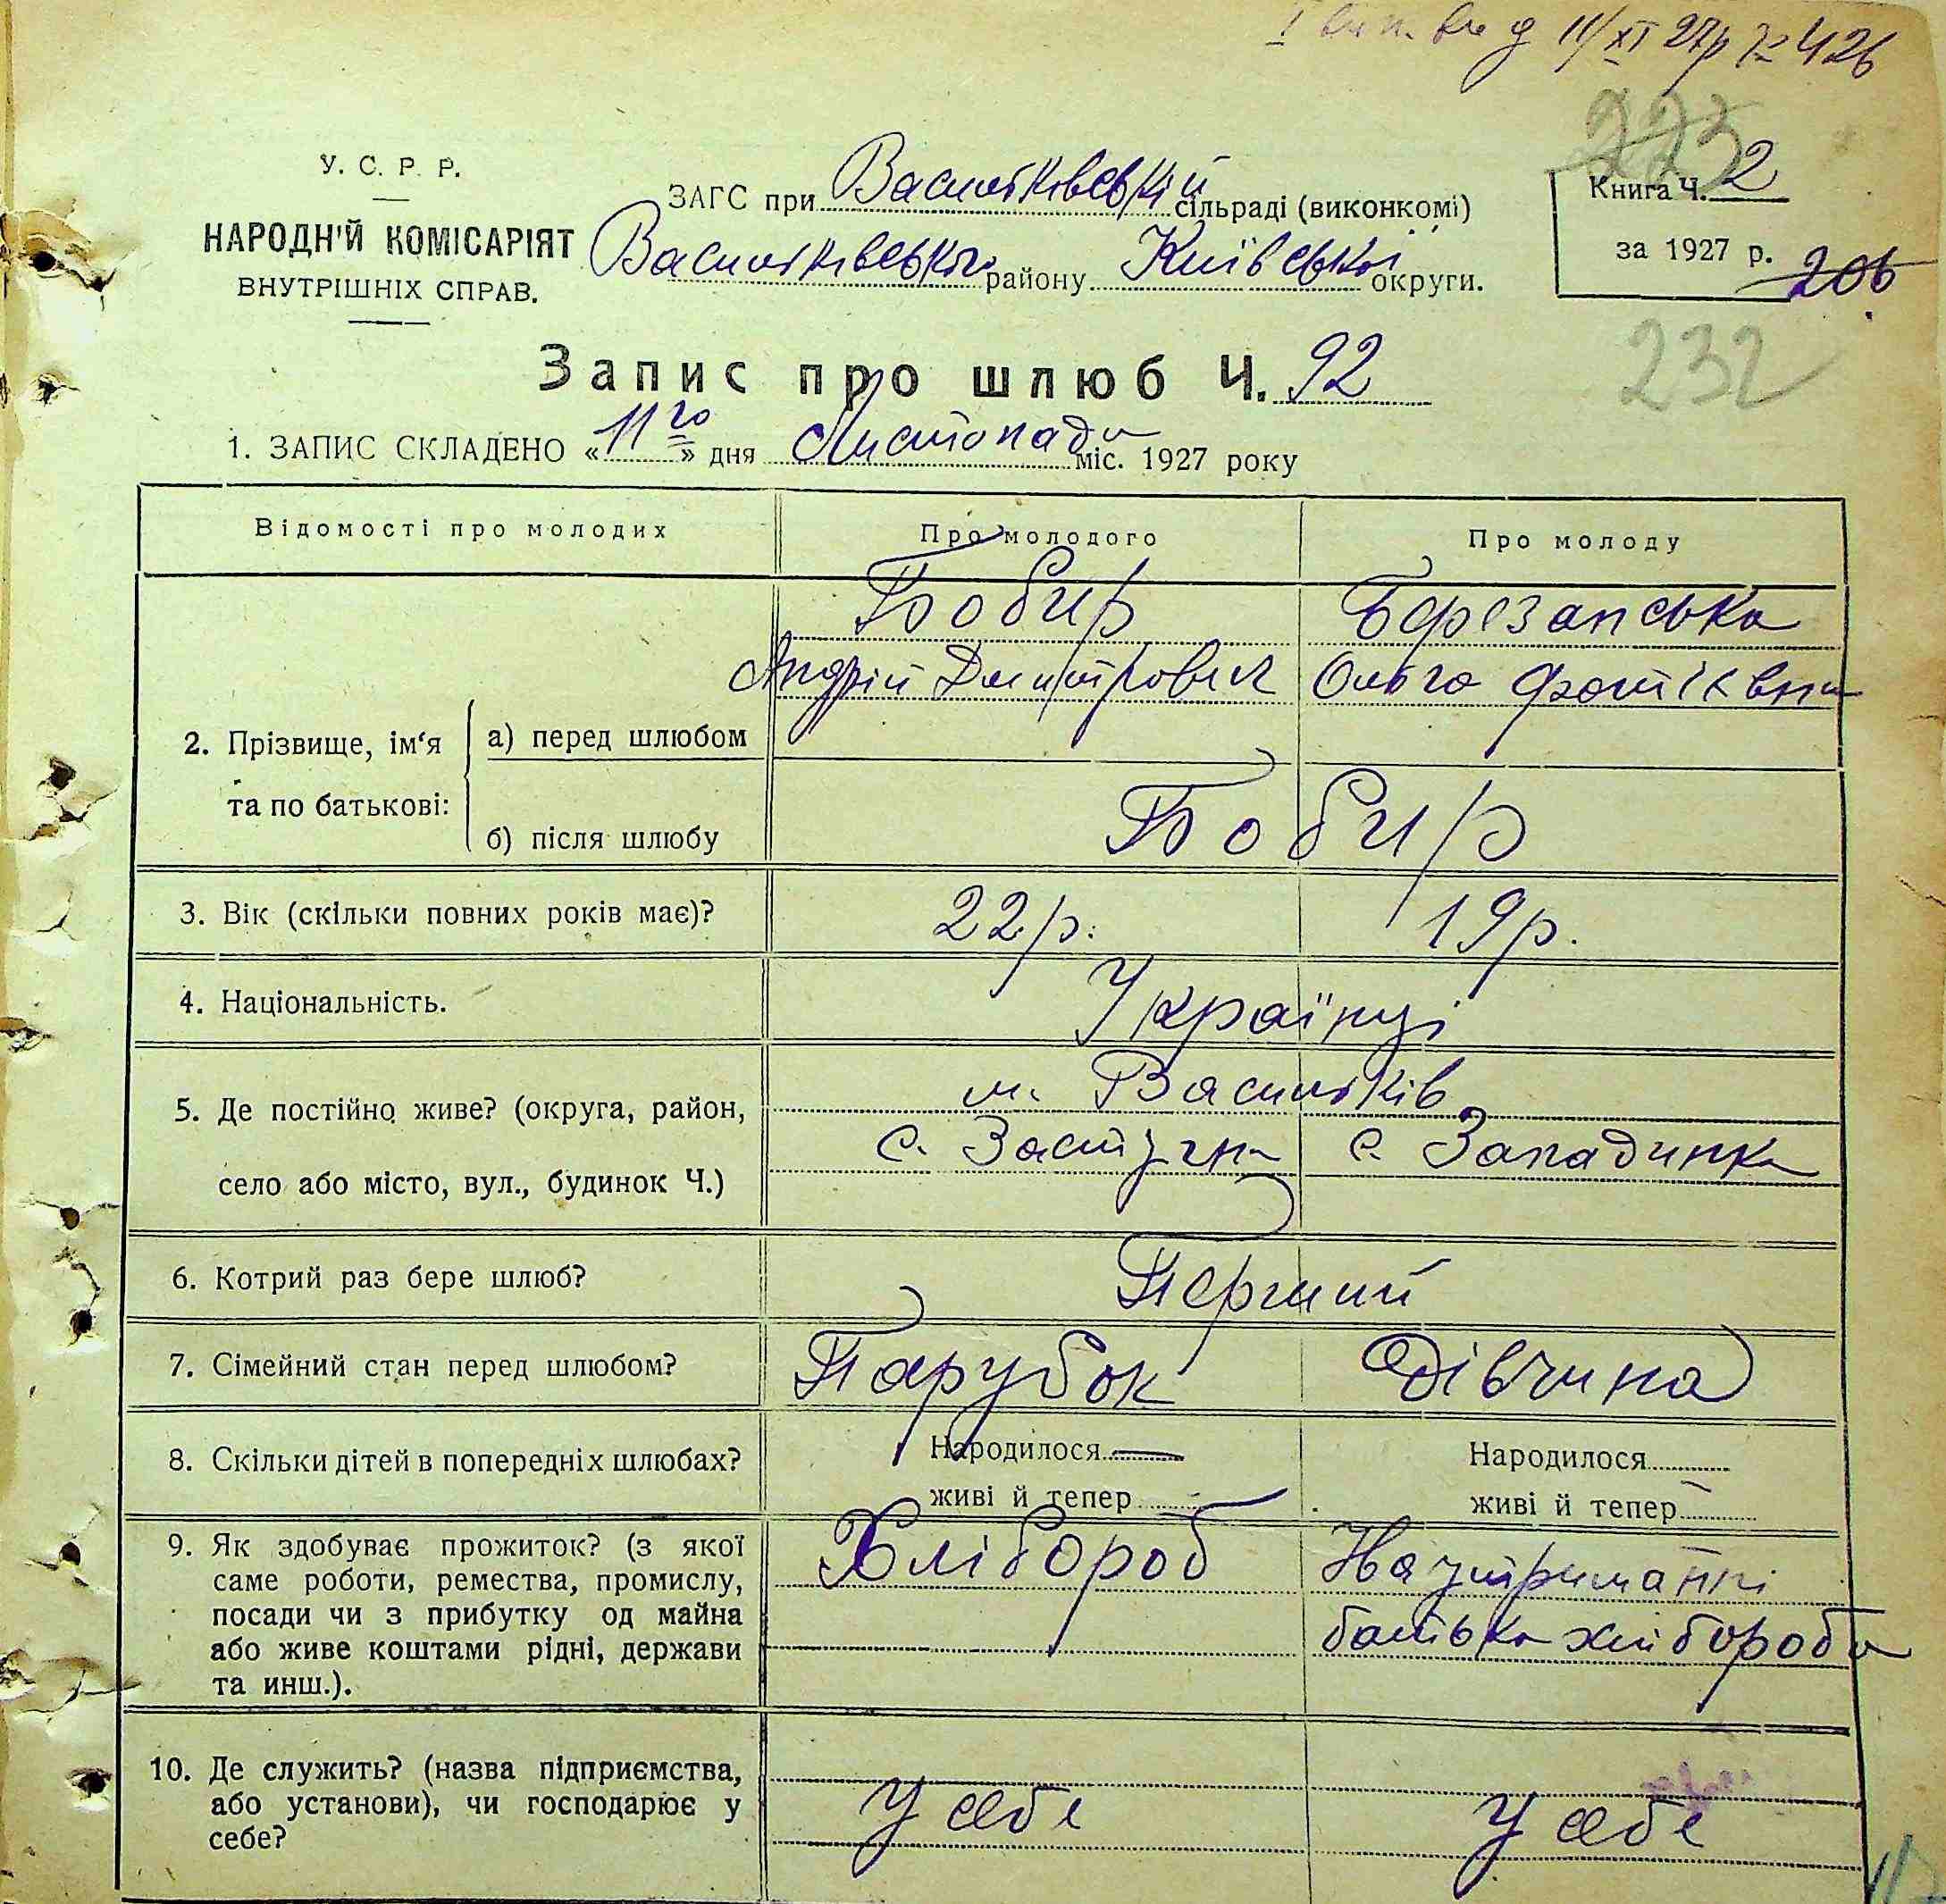 11/XI 27р № 426
223
У. С. Р. Р.
НАРОДНІЙ КОМІСАРІЯТ
ВНУТРІШНІХ СПРАВ.
ЗАГС при Васильківській сільраді (виконкомі)
Васильківського району Київської округи.
Книга Ч. 2
за 1927 р.
206
232
Запис про шлюб Ч. 92
1. ЗАПИС СКЛАДЕНО «11го» дня Листопада міс. 1927 року
Відомості про молодих Про молодого Про молоду
Бобир Березанська
Андрій Дмитрович Ольга Фотіївна
2. Прізвище, ім'я та по батькові:
а) перед шлюбом
б) після шлюбу Бобир
3. Вік (скільки повних років має)? 22 р. 19 р.
4. Національність. Українці
5. Де постійно живе? (округа, район, м. Васильків
село або місто, вул., будинок Ч.) с. Застугна с. Западинка
6. Котрий раз бере шлюб? Перший
7. Сімейний стан перед шлюбом? Парубок Дівчина
8. Скільки дітей в попередніх шлюбах? Народилося — Народилося
живі й тепер — живі й тепер —
9. Як здобуває прожиток? (з якої Хлібороб На утриманні
саме роботи, ремества, промислу, батька хлібороба
посади чи з прибутку од майна
або живе коштами рідні, держави
та инш.).
10. Де служить? (назва підприємства,
або установи), чи господарює у У себе У себе
себе?